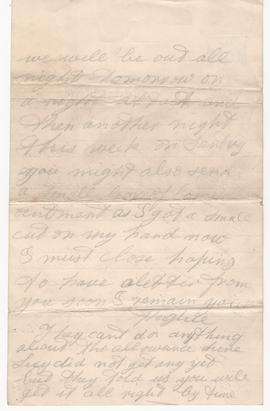 we will be out all
night tomorrow on
a night attack and
then another night
this week on Sentry
you might also send
a small box of
ointment as I got a small
cut on my hand now
I must close hoping
to have a letter from
you soon I remain
Hughie
They cant do anything
about the allowance
did not get any yet
but they told us you will
get it all right by June